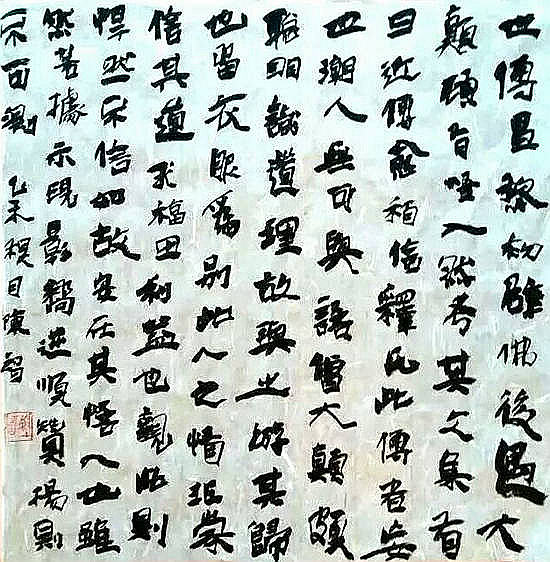 世傳昌黎初雖佛後遇大
顛頓入然考其文集有
曰近傳愈稍信釋氏此傳者妄
也潮人無可與語僧大顛頗
聰明識道理故與之游其歸
也留衣服為別此人之情非崇
信其道求福田利益也觀此則
悍然不信如故安在其悟入也雖
然若據示現影響逆順贊揚則
不可 乙未日陳雪